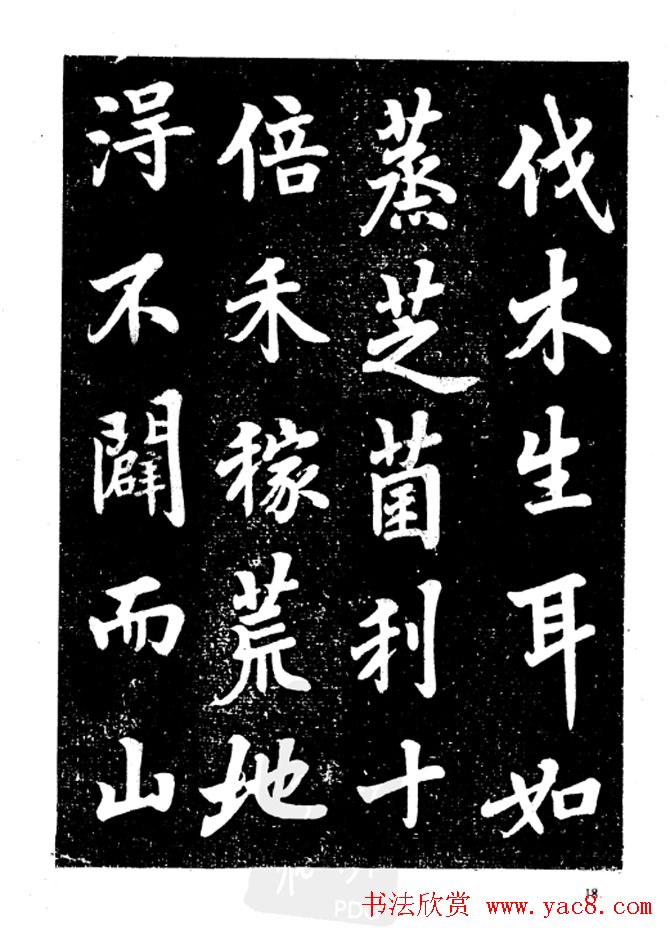 伐木生耳如
蒸芝菌利十
倍禾稼荒地
淂不闢而山
18
书法欣赏 www.yac8.com
PDG